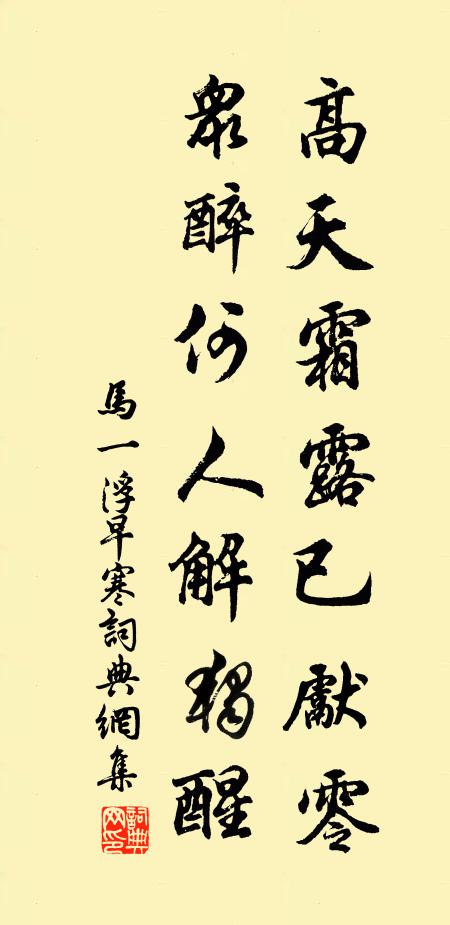 高天霜露已獻零
眾醉何人解獨醒
馬一浮早寒詞典網集
詞典网印